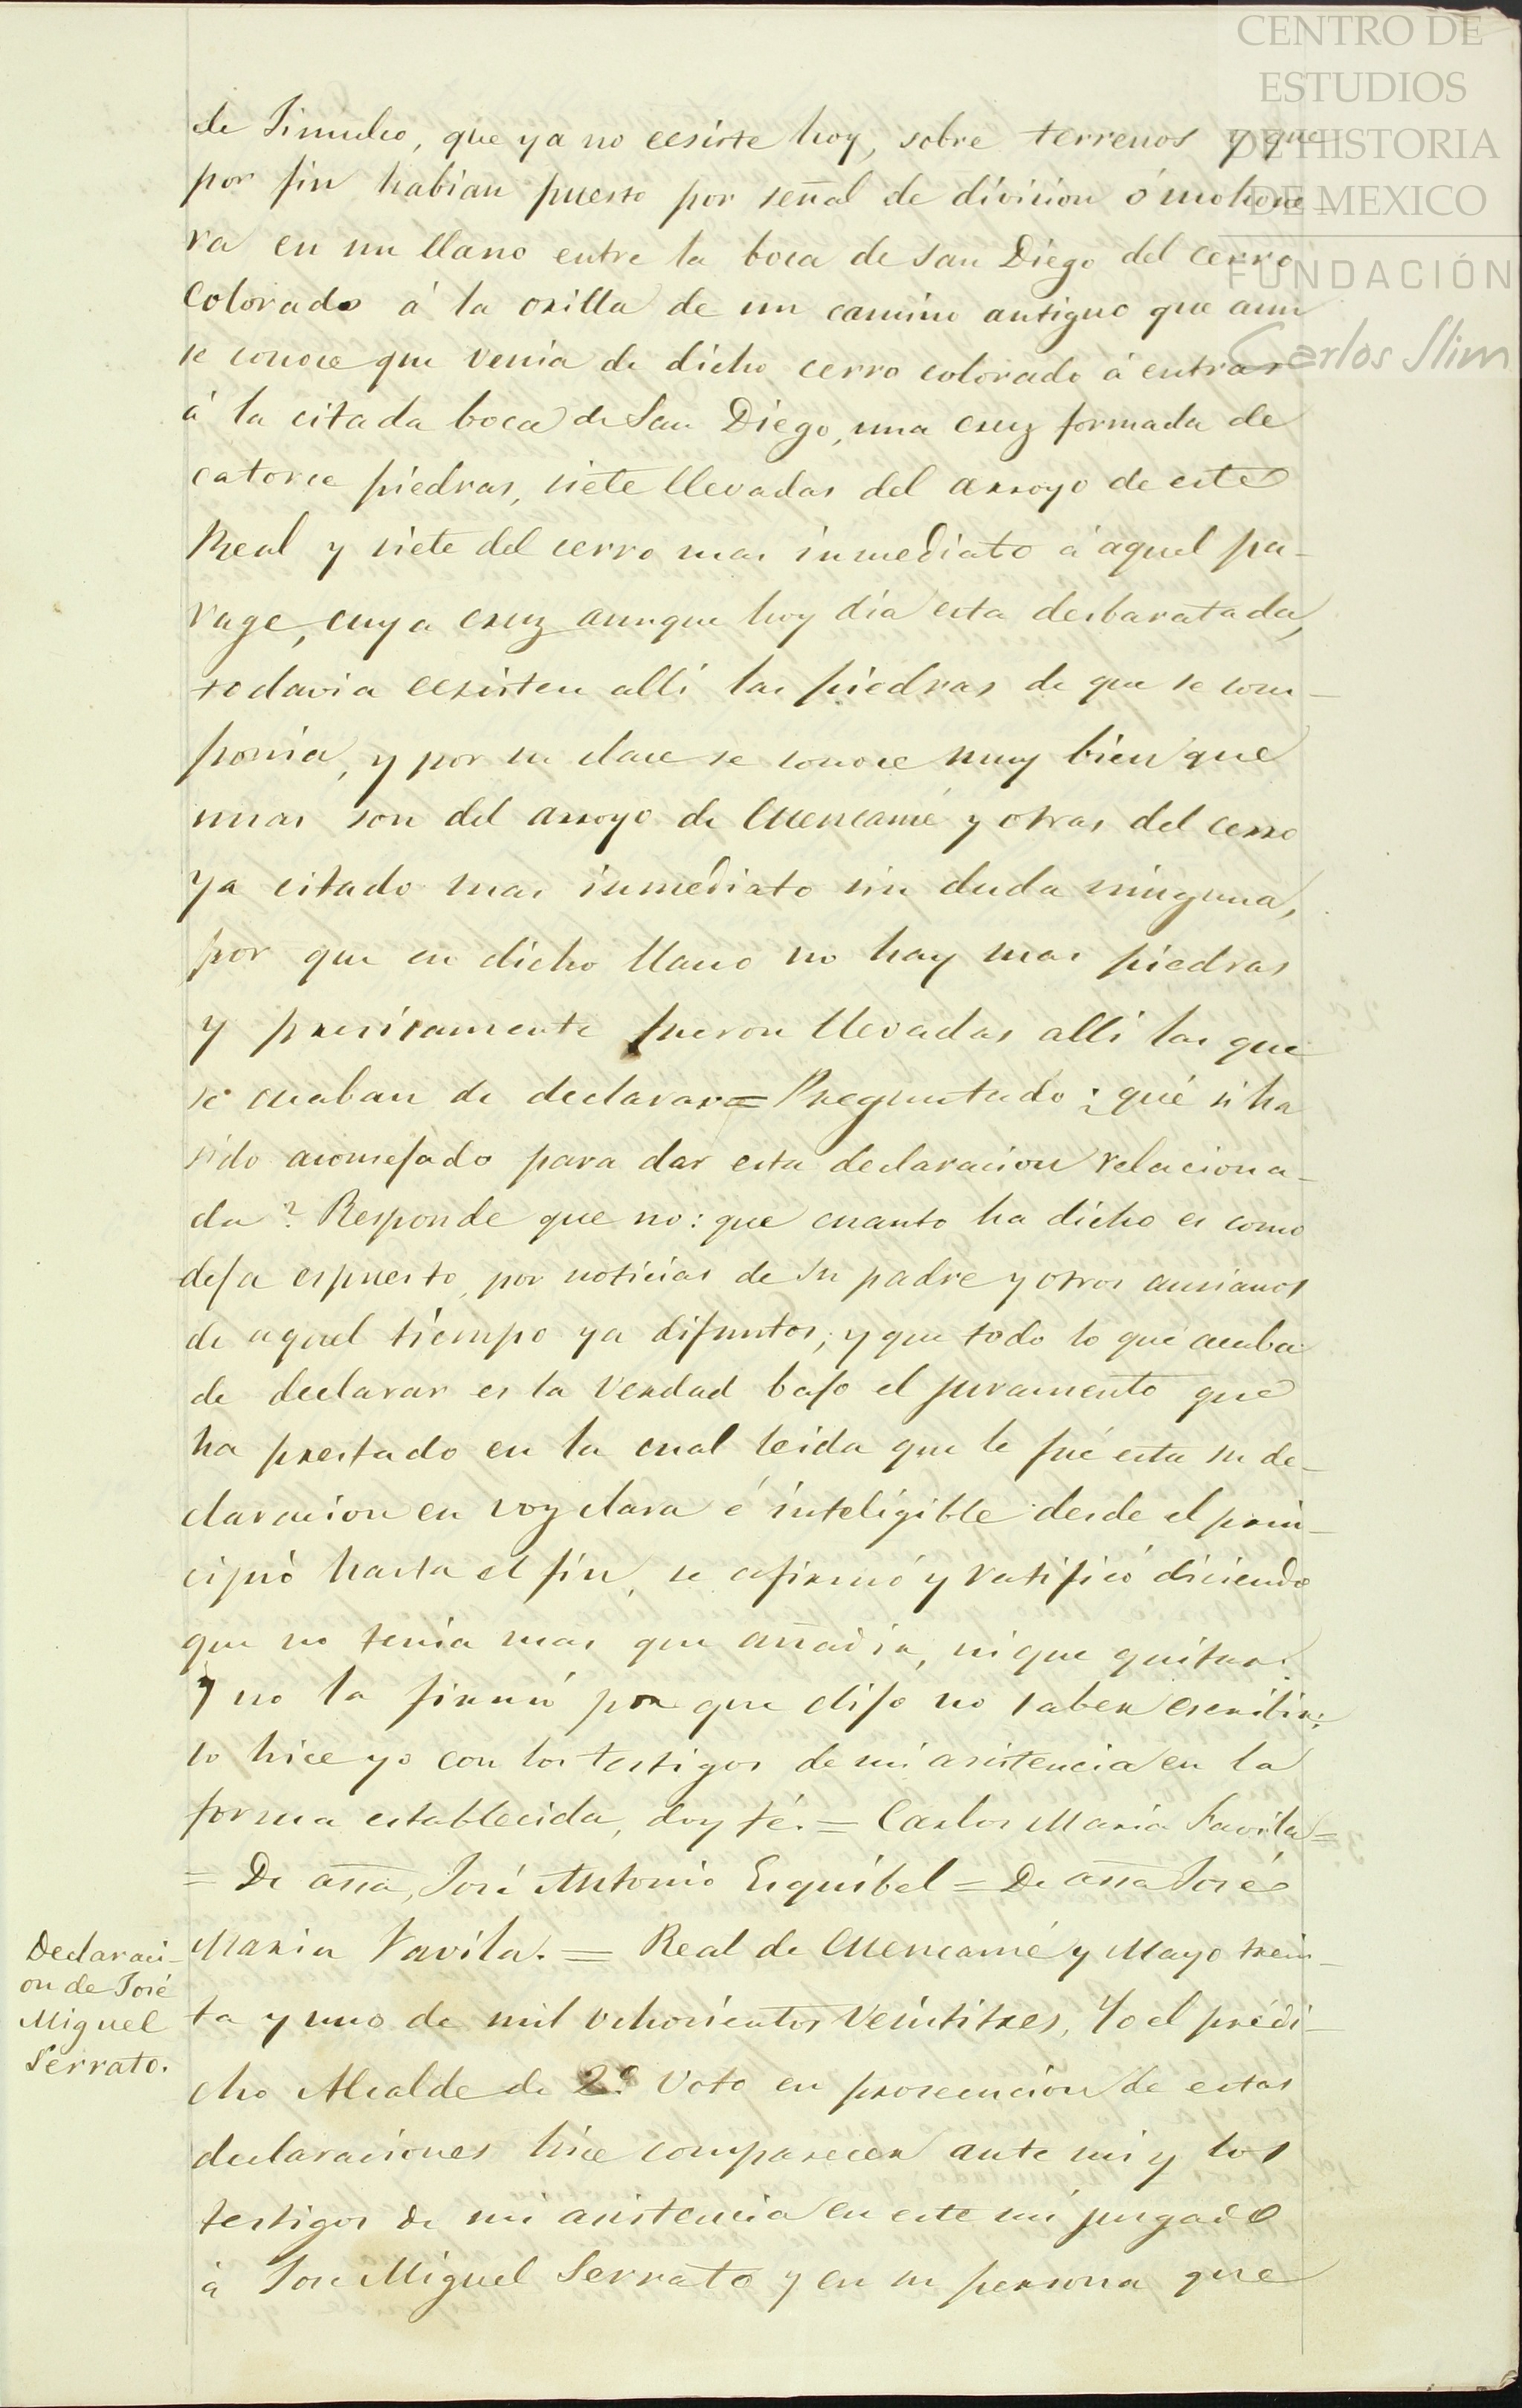 CENTRO DE
ESTUDIOS
DE HISTORIA
DE MEXICO
FUNDACIÓN
Carlos Slim
de que ya no eesiste hoy, sobre terrenos y que
por fin habian puesto por señal de division ó mohone-
ra en un llano entre la boca de San Diego del cerro
Colorado á la orilla de un camino antiguo que aun
se conoce que venia de dicho cerro colorado á entrar
á la citada boca de San Diego, una cruz formada de
catorce piedras, siete llevadas del arroyo de este
Real y siete del cerro mas inmediato á aquel pa-
rage, cuya cruz aunque hoy dia esta desbaratada,
todavia eexisten alli las piedras de que se com-
ponia, y por su clace se conoce muy bien que
unas son del arroyo de Cuencamé y otras del cerro
ya citado mas inmediato sin duda ninguna,
por que en dicho llano no hay mas piedras
y presisamente fueron llevadas alli las que
se acaban de declarar = Preguntado ¿qué si ha
sido aconsejado para dar esta declaracion relaciona-
da? Responde que no: que cuanto ha dicho es como
deja espuesto, por noticias de su padre y otros ansianos
de aquel tiempo ya difuntos; y que todo lo que acaba
de declarar es la verdad bajo el juramento que
ha prestado en la cual leida que le fué esta su de-
claracion en voz clara é inteligible desde el prin-
cipio hasta el fin, se afirmó y ratificó diciendo
que no tenia mas que añadir, ni que quitar:
y no la firmó por que dijo no saber escribir:
lo hice yo con los testigos de mi asistencia en la
forma establecida, doy fé. = Carlos Maria Favila =
= De assa, José Antonio Esquibel = De assa José
Maria Favila. = Real de Cuencamé y Mayo trein-
ta y uno de mil ochosientos veintitres, Yo el prédi-
cho Alcalde de 2º Voto en prosecucion de estas
declaraciones hice comparecer ante mi y los
testigos de mi asistencia en este mi juzgado
á José Miguel Serrato y en su persona que
Declaraci-
on de José
Miguel
Serrato.